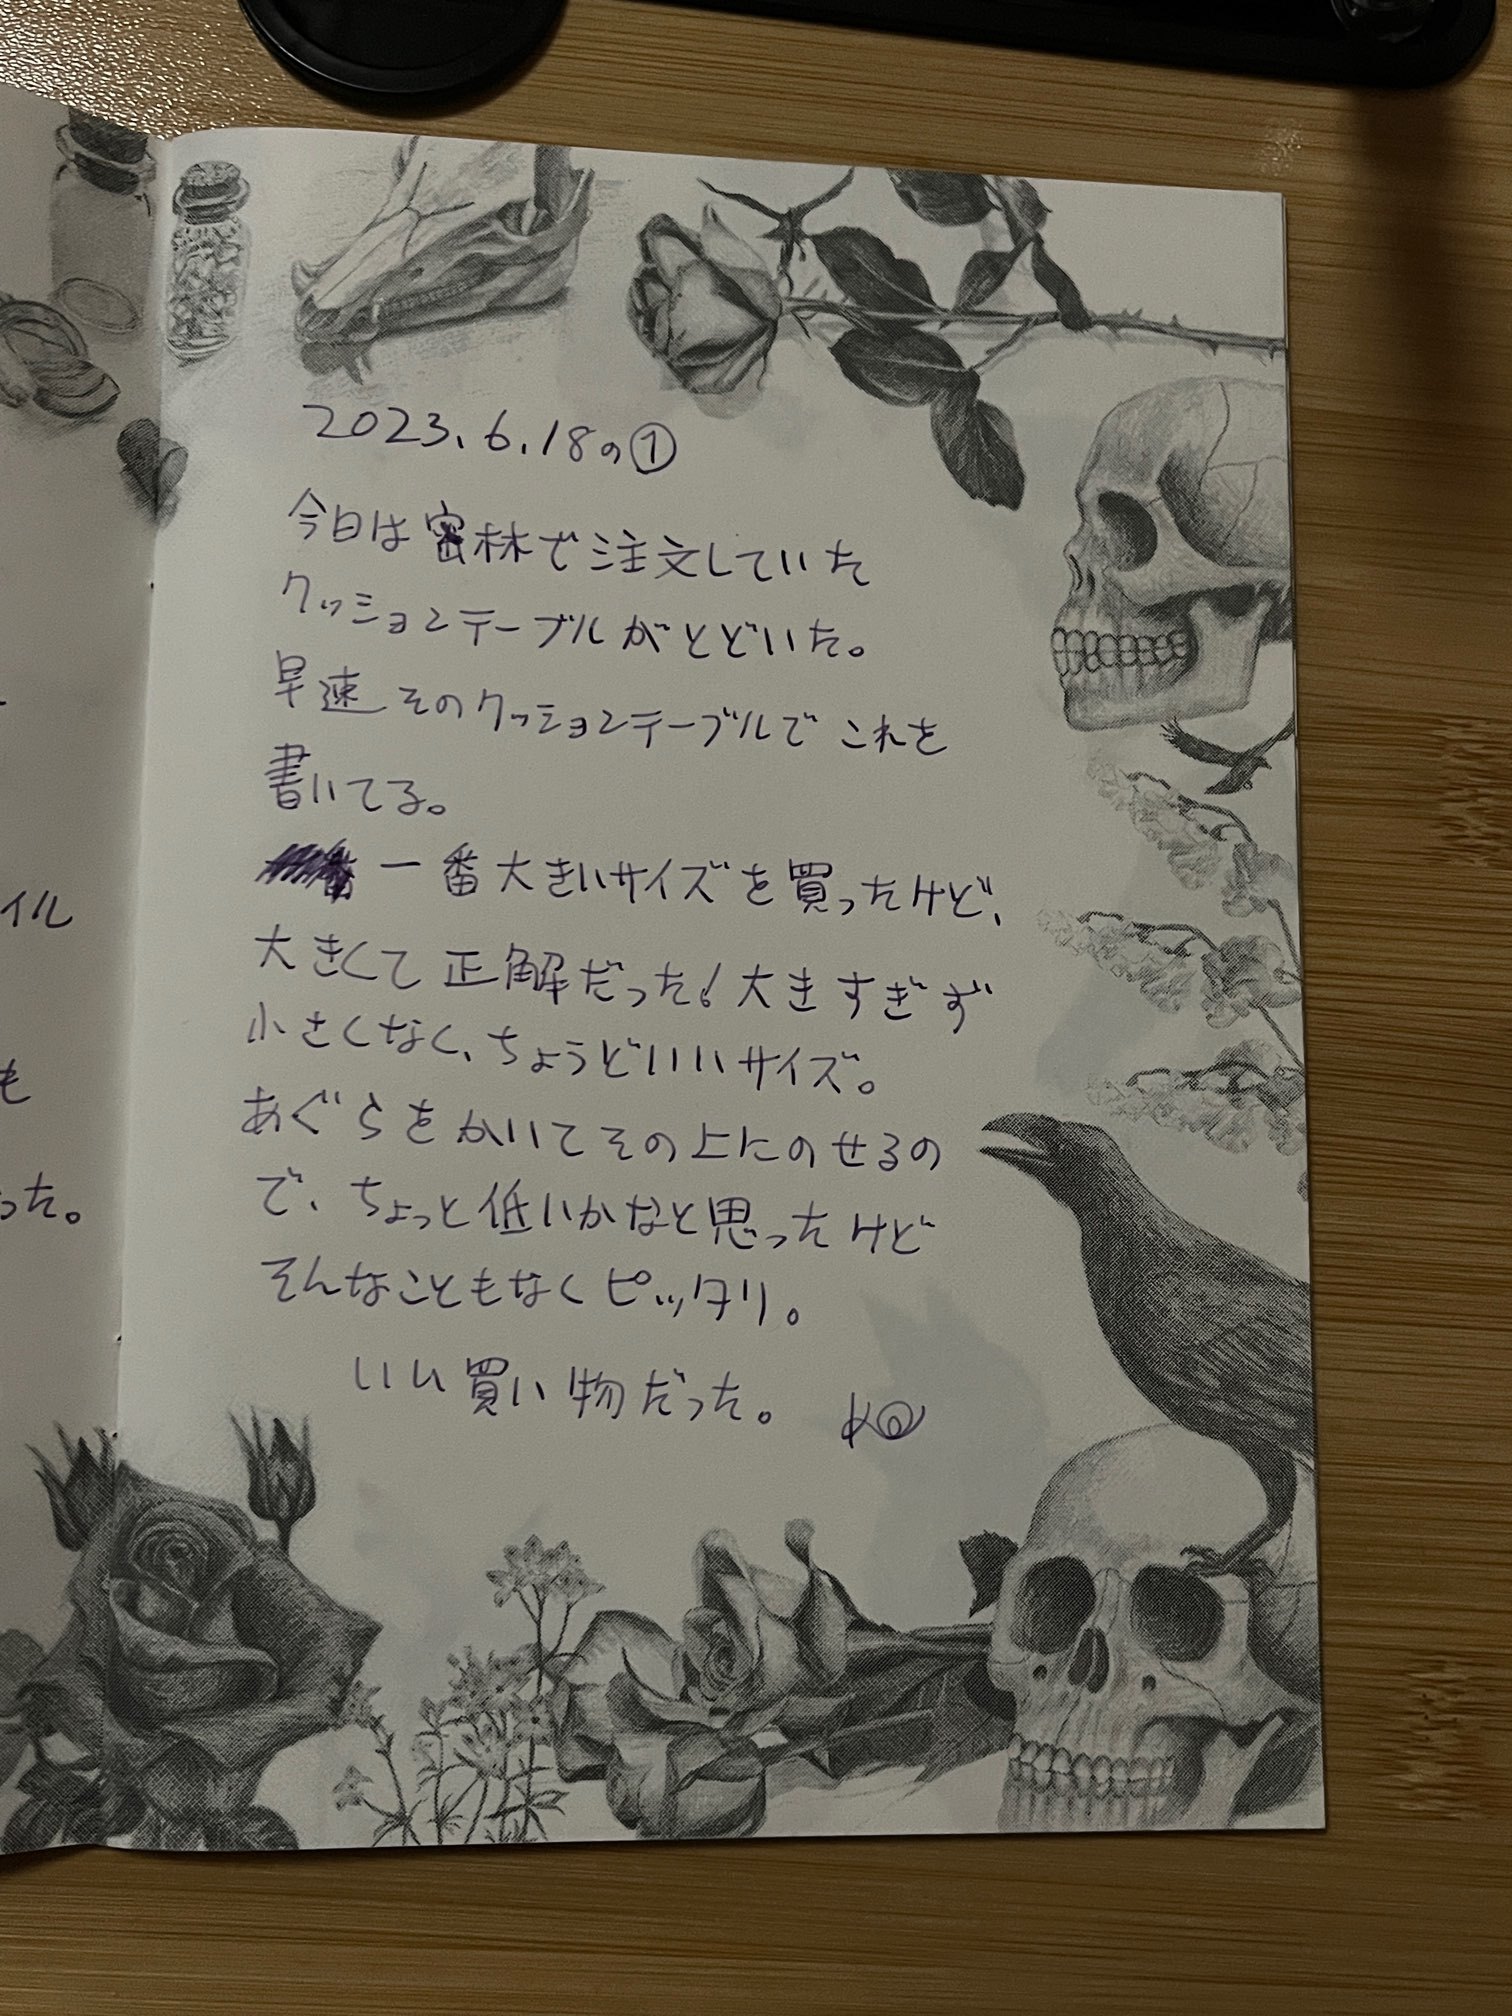 2023.6.18の①
今日は密林で注文していた
クッションテーブルがとどいた。
早速そのクッションテーブルでこれを
書いてる。
一番大きいサイズを買ったけど、
大きくて正解だった!大きすぎず
小さくなく、ちょうどいいサイズ。
あぐらをかいてその上にのせるの
で、ちょっと低いかなと思ったけど
そんなこともなくピッタリ。
いい買い物だった。
イル
も
った。